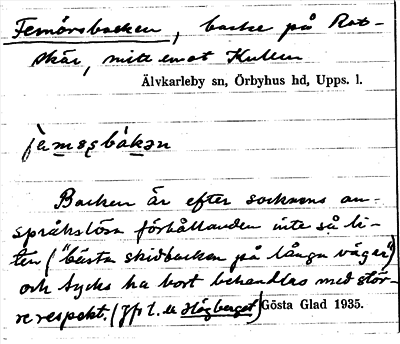 Femörsbacken, backe på Rot-
skär, mitt emot Kullen
Älvkarleby sn, Örbyhus hd, Upps. l.
Backen är efter socknens an-
språkslösa förhållanden inte så li-
ten ("bästa skidbacken på långa vägar")
och tycks ha bort behandlas med stör-
re respekt. (Jfr t. ex Högberget) Gösta Glad 1935.